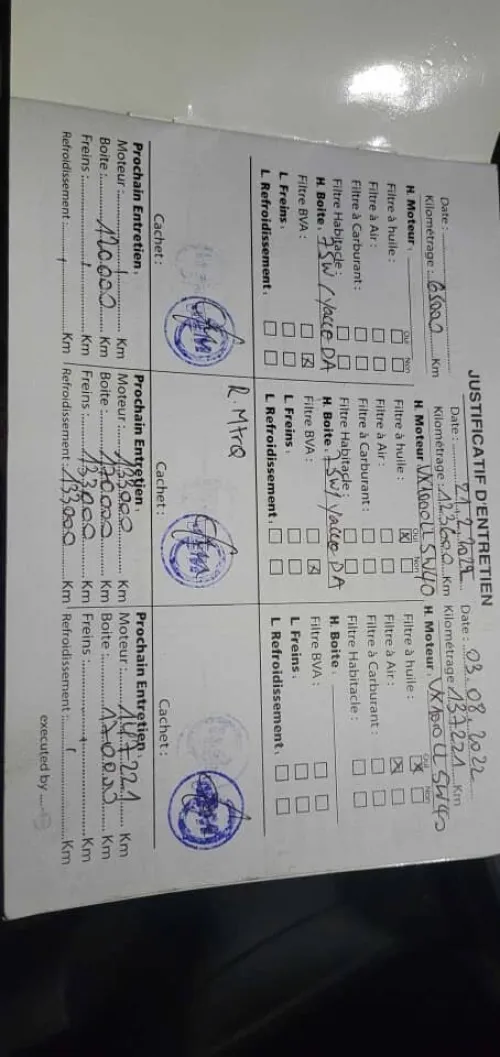 JUSTIFICATIF D'ENTRETIEN
Date :
Kilométrage : 65000 Km
H. Moteur :
Oui Non
Filtre à huile :
Filtre à Air :
Filtre à Carburant :
Filtre Habitacle :
H. Boite : 75W yacco DA
Filtre BVA :
L. Freins :
L. Refroidissement :
Cachet :
Prochain Entretien :
Moteur : Km
Boite : 120000 Km
Freins : Km
Refroidissement : Km
Date :
Kilométrage : 123000 Km
H. Moteur : VX1000LL 5W40
Oui Non
Filtre à huile :
Filtre à Air :
Filtre à Carburant :
Filtre Habitacle :
H. Boite : 75W yacco DA
Filtre BVA :
L. Freins :
L. Refroidissement :
Cachet :
Prochain Entretien :
Moteur : 133000 Km
Boite : 170000 Km
Freins : 133000 Km
Refroidissement : 133000 Km
Date : 03.08.2022
Kilométrage : 137221 Km
H. Moteur : VX1000LL 5W40
Oui Non
Filtre à huile :
Filtre à Air :
Filtre à Carburant :
Filtre Habitacle :
H. Boite :
Filtre BVA :
L. Freins :
L. Refroidissement :
Cachet :
Prochain Entretien :
Moteur : 147221 Km
Boite : 170000 Km
Freins : Km
Refroidissement : Km
executed by